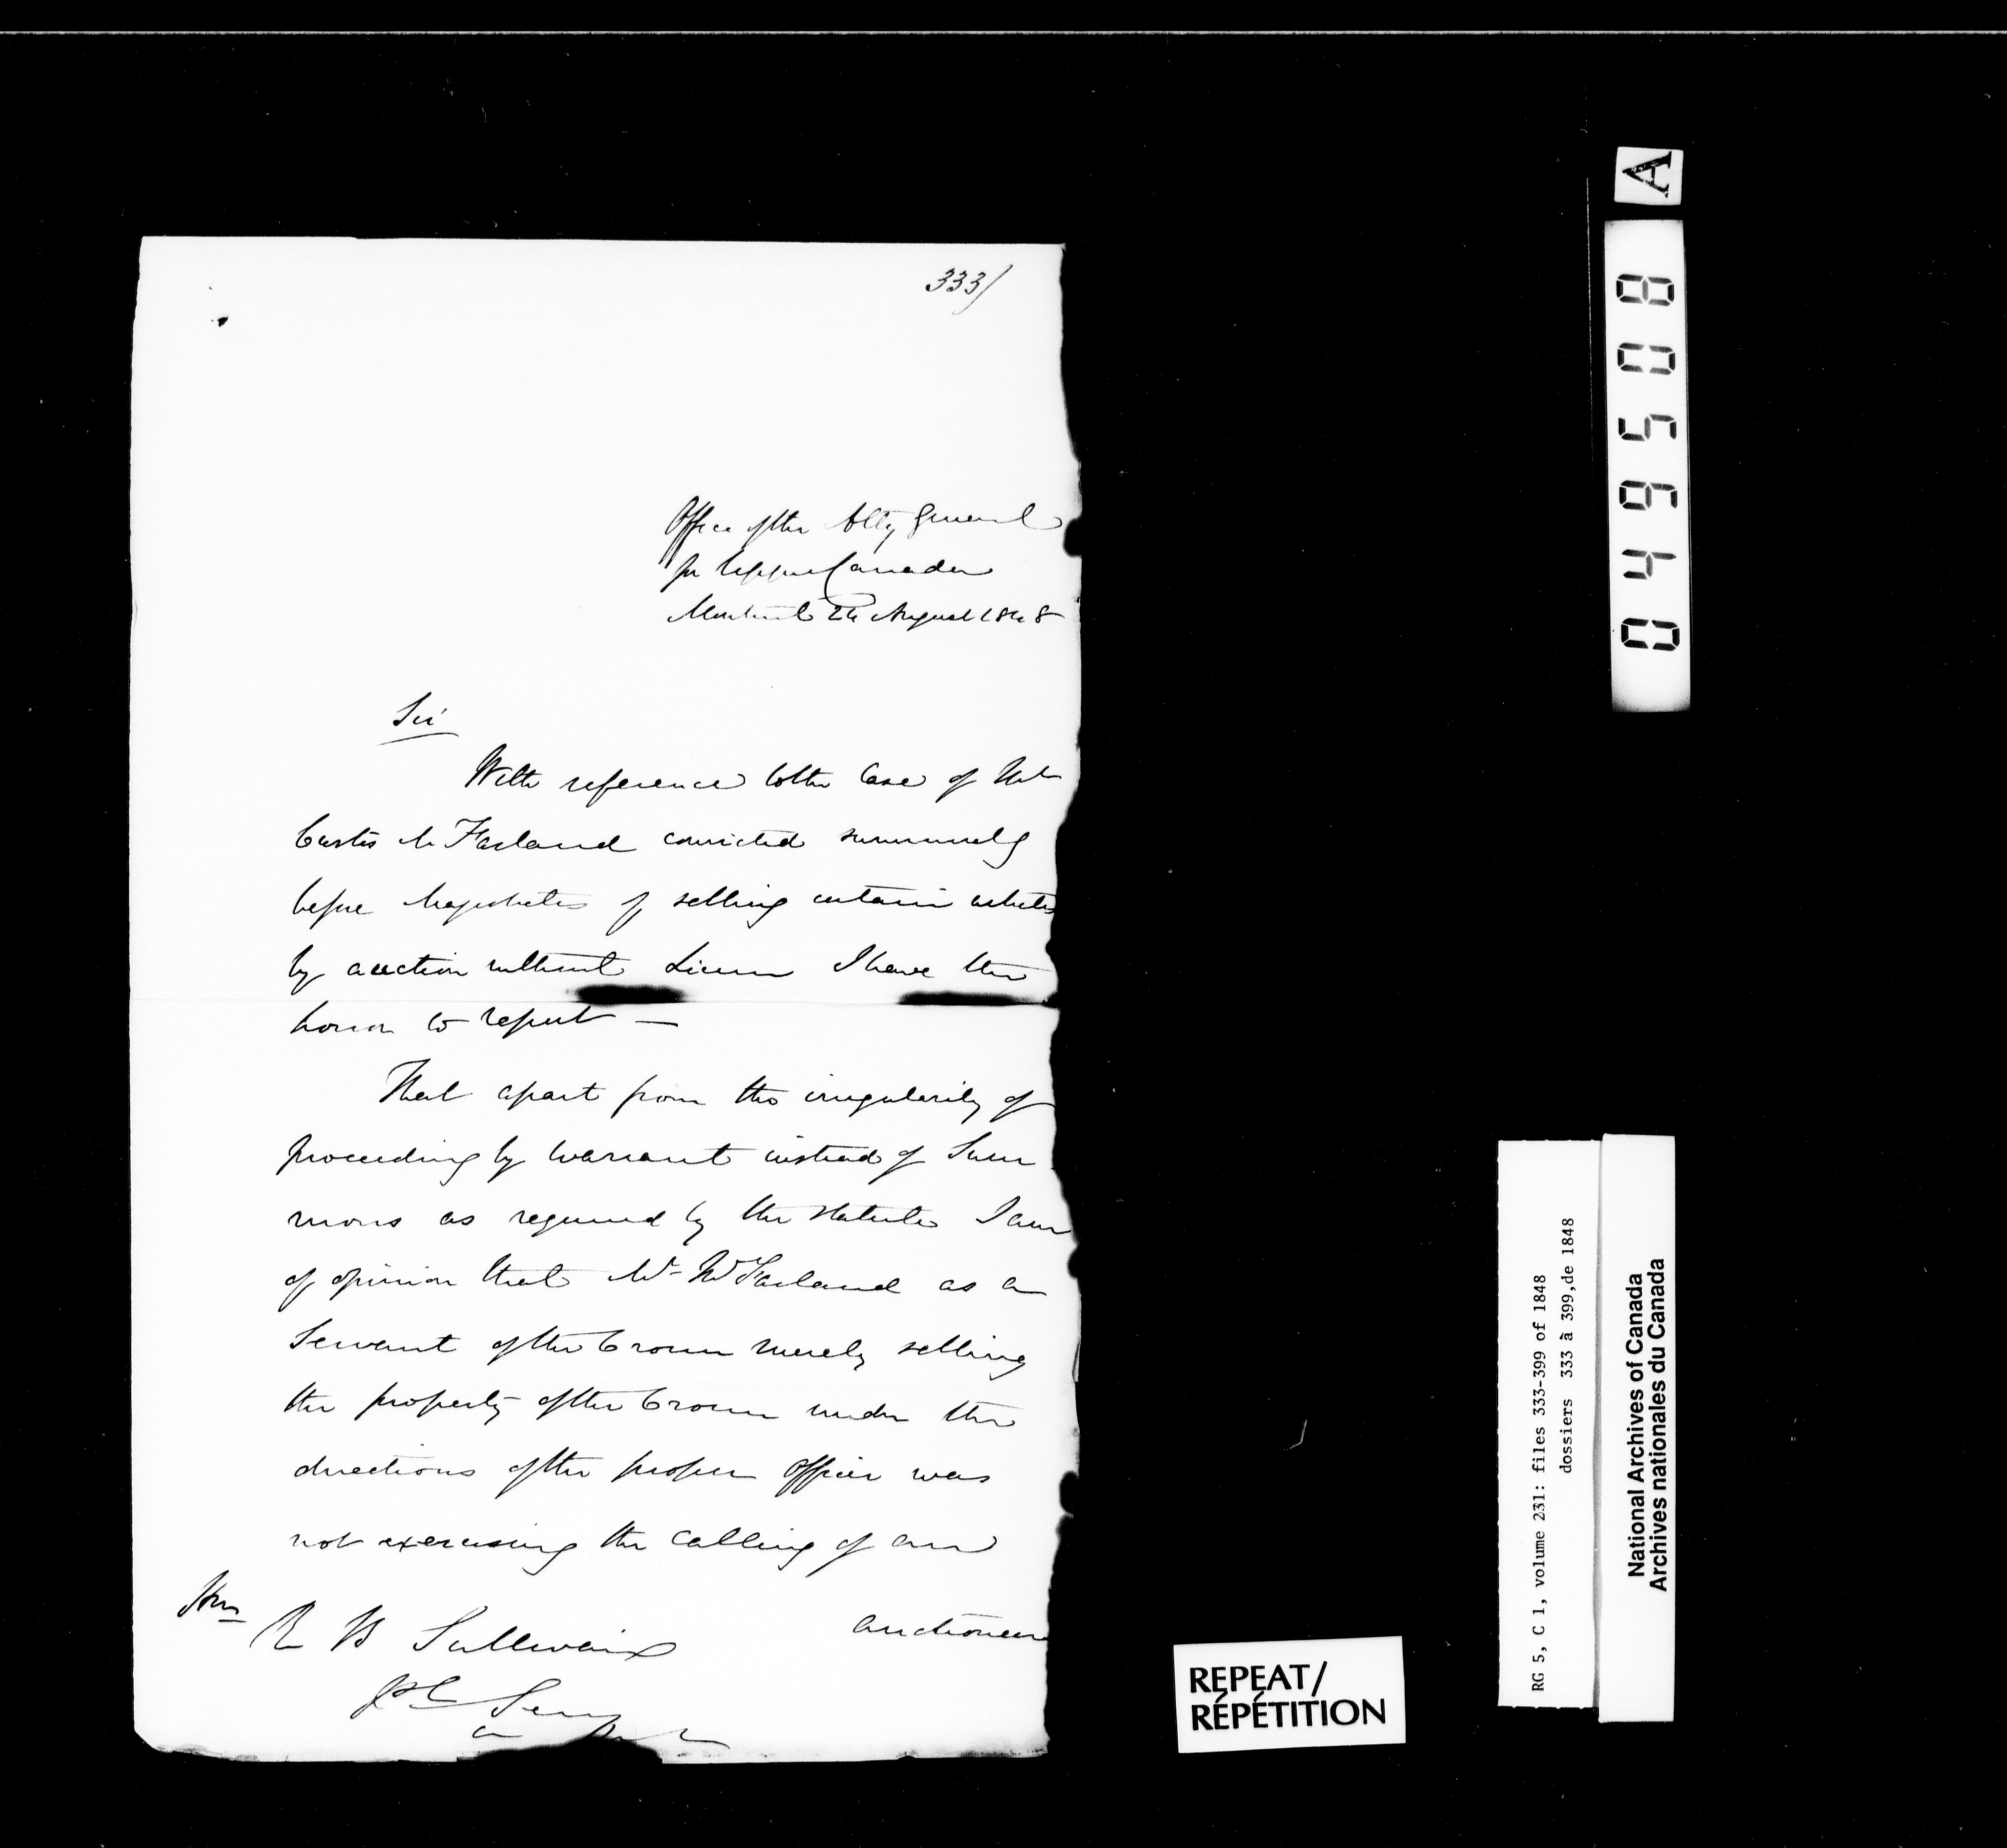 333/
Office of the Atty General
for Upper Canada
Montreal 24 August 1848
Sir
With reference to the Case of
Curtis McFarland convicted summarily
before Magistrates of selling certain articles
by auction without License I have the
honor to report —
That apart from the irregularity of
proceeding by Warrant instead of Sum
mons as required by the Statute I am
of opinion that Mr McFarland as a
Servant of the Crown merely selling
the property of the Crown under the
directions of the proper Officer was
not exercising the Calling of an
auctioneer
Hon
R B Sullivan
A
045608
RG 5, C 1, volume 231: files 333-399 of 1848
dossiers 333 à 399,de 1848
National Archives of Canada
Archives nationales du Canada
REPEAT/
RÉPÉTITION